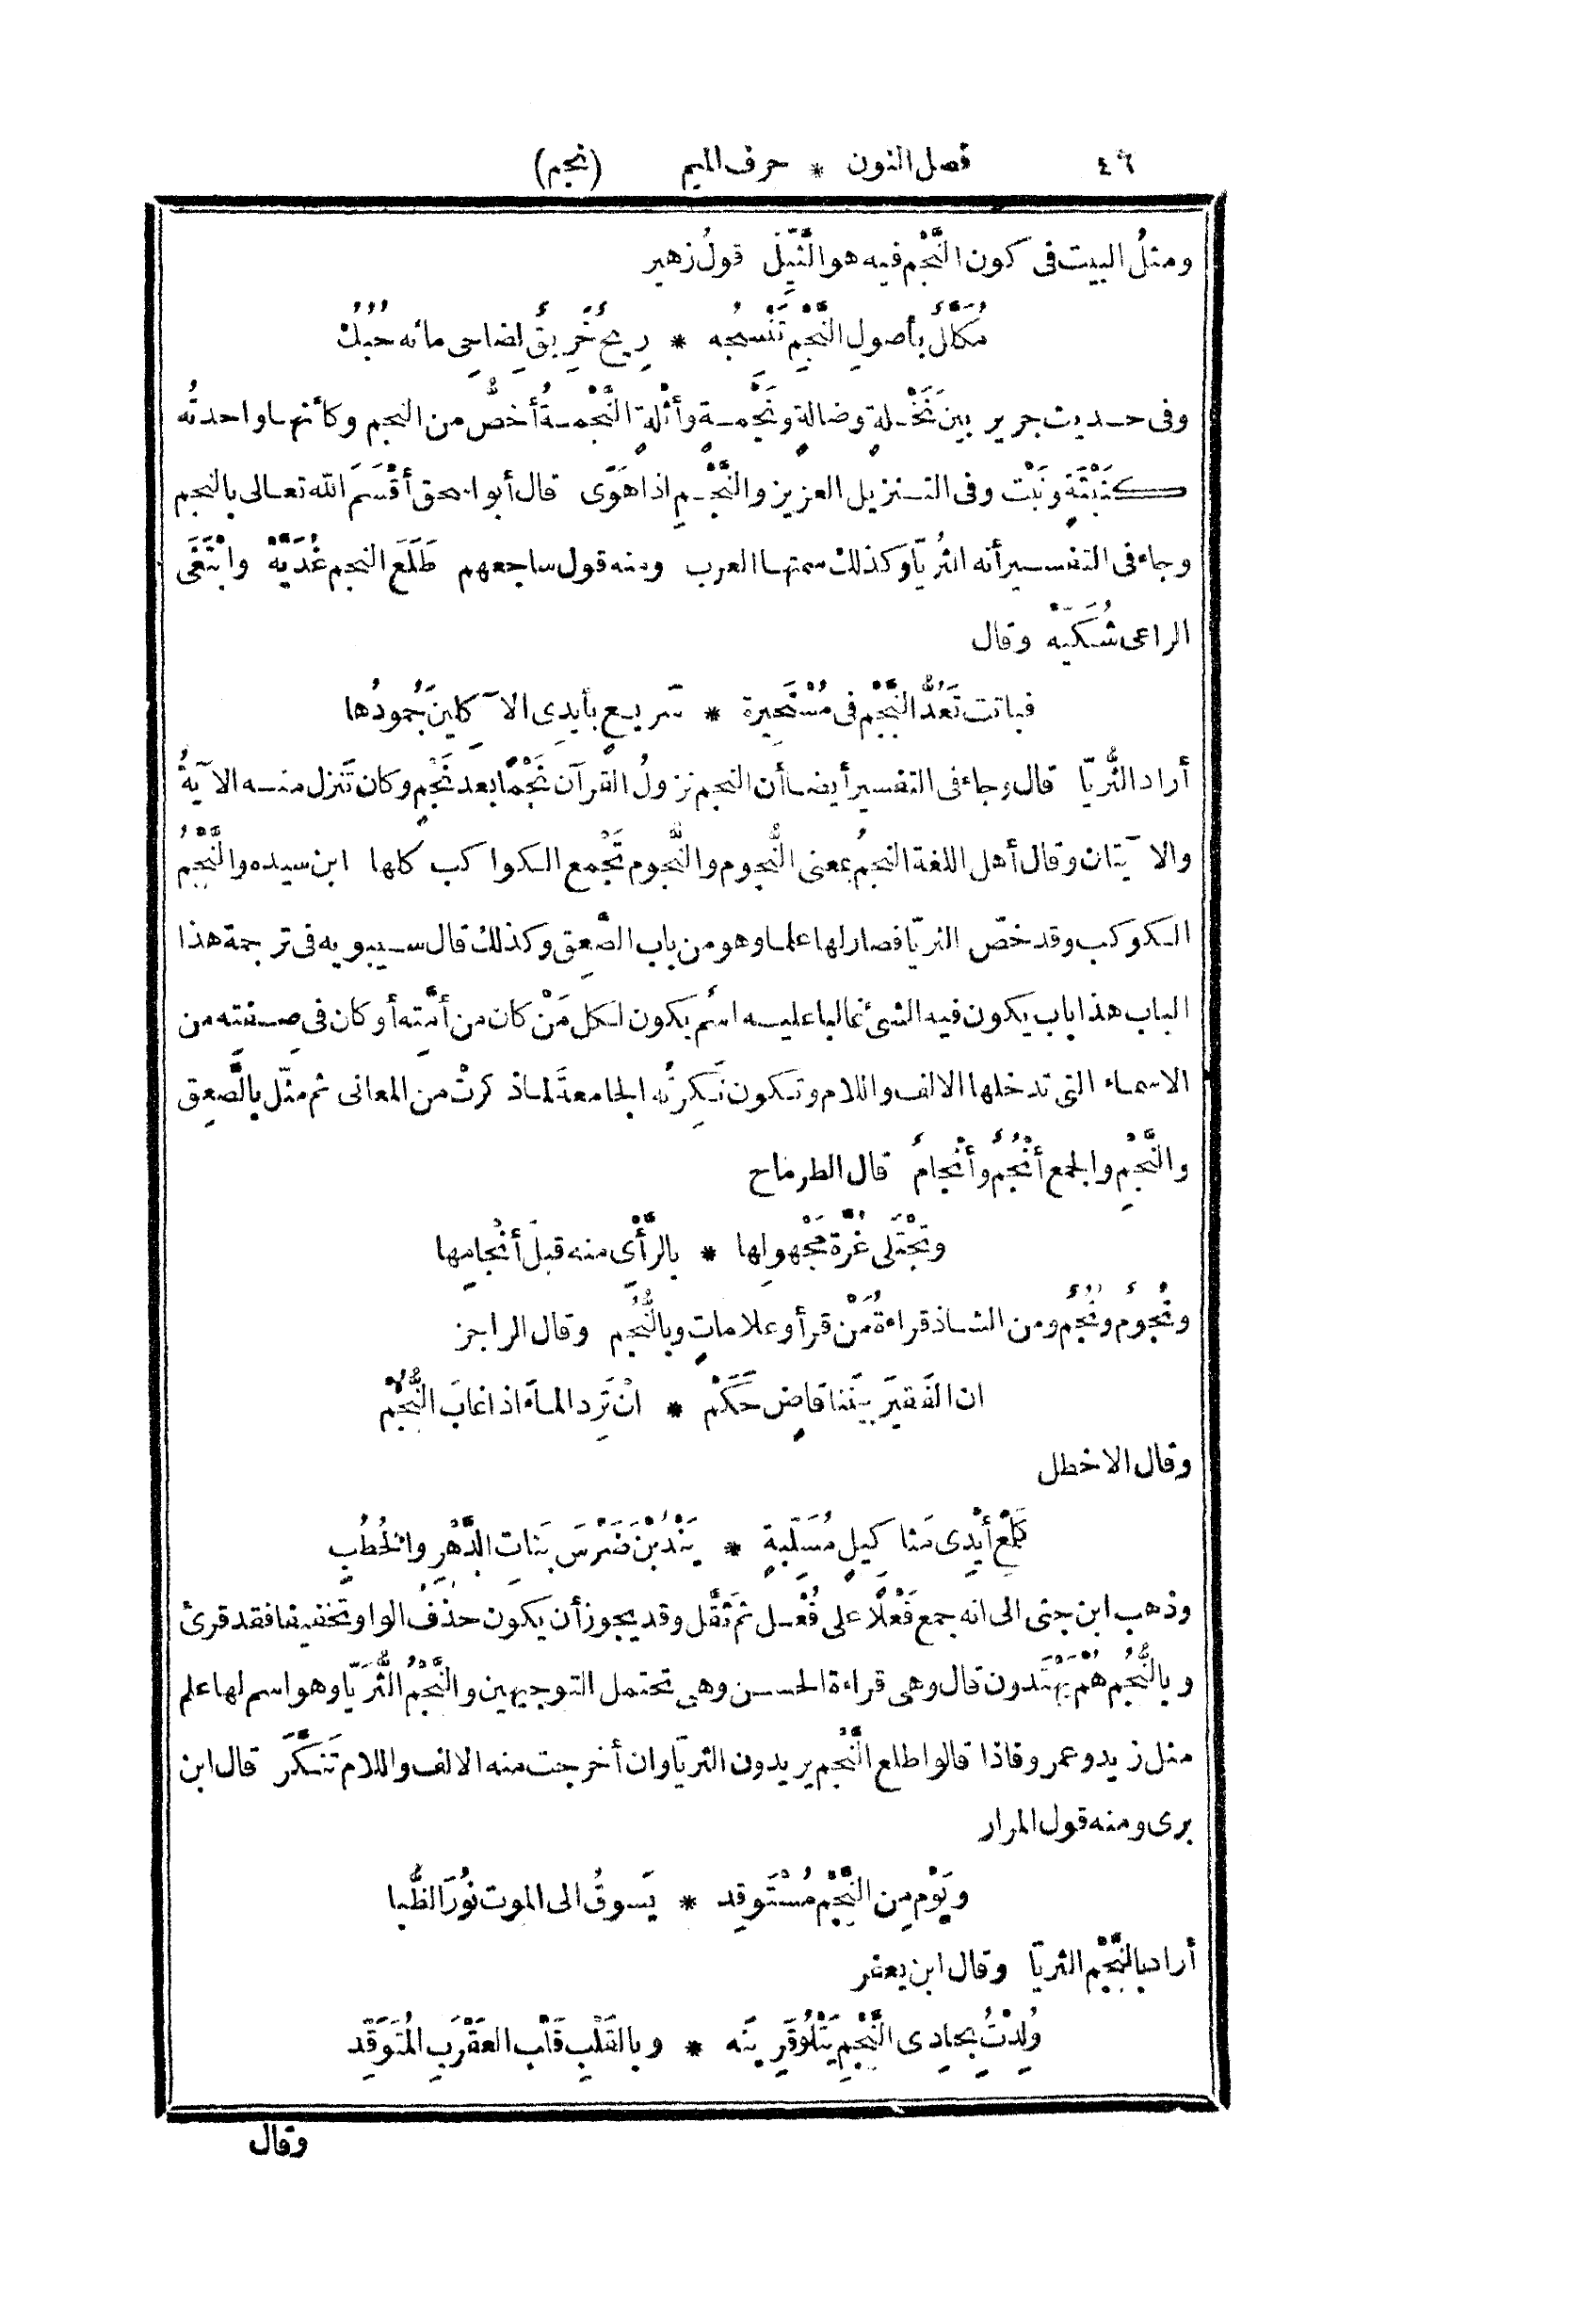 ٤٦ فصل النون * حرف الميم (نجم)
ومثلُ البيت فى كون النَّجْم فيه هو الثَّيِّلَ قولُ زهير
مُكَلَّلٌ بأصولِ النَّجْمِ تَنْسِجُه * رِيحٌ خَرِيقٌ لِضاحِى مائه حُبُكُ
وفى حديث جرير بينَ نَخْلةٍ وضالةٍ ونَجْمةٍ وأَثْلةٍ النَّجْمةُ أخصُّ من النجم وكأنها واحدتُه
كنَبْتَةٍ ونَبْت وفى التنزيل العزيز والنَّجْمِ اذا هَوَى قال أبو اسحق أقْسَمَ الله تعالى بالنجم
وجاء فى التفسير أنه الثُريّا وكذلك سمتها العرب ومنه قول ساجعهم طَلَعَ النجم غُدَيَّهْ وابْتَغَى
الراعى شُكَيَّهْ وقال
فباتت تَعُدُّ النَّجْم فى مُسْتَحِيرة * سَريعٍ بأيدِى الآكِلينَ جُمودُها
أراد الثُّريّا قال وجاء فى التفسير أيضا أن النجم نزولُ القرآن نَجْمًا بعد نَجْمٍ وكان تَنزل منه الآيةُ
والآيتان وقال أهل اللغة النجمُ بمعنى النُّجوم والنُّجوم تَجْمع الكواكب كلها ابن سيده والنَّجْمُ
الكوكب وقد خصّ الثريّا فصار لها علما وهو من باب الصَّعِق وكذلك قال سيبويه فى ترجمة هذا
الباب هذا باب يكون فيه الشئ غالبا عليه اسمٌ يكون لكل مَنْ كان من أمَّتِه أو كان فى صِفَتِه من
الاسماء التى تدخلها الالف واللام وتكون نَكِرتُه الجامعةَ لما ذكرتْ من المعانى ثم مثّل بالصَّعِق
والنَّجْمِ والجمع أنْجُمٌ وأنْجامٌ قال الطرماح
وتَجْتَلى غُرَّة مَجْهولِها * بالرَّأْىِ منه قبلَ أنْجامِها
ونُجومٌ ونُجُمٌ ومن الشاذ قراءةُ مَنْ قرأ وعلاماتٍ وبالنُّجُم وقال الراجز
ان الفَقيرَ بينَنا قاضٍ حَكَمْ * انْ تَرِد الماءَ اذا غابَ النُّجُمْ
وقال الاخطل
كلَمْعِ أيْدِى مَثاكِيلٍ مُسَلِّبةٍ * يَنْدُبْنَ ضَرْسَ بَناتِ الدَّهْرِ والخُطُبِ
وذهب ابن جنى الى انه جمع فَعْلًا على فُعْل ثم ثَقَّل وقد يجوز أن يكون حذَفَ الواو تخفيفا فقد قرئ
وبالنُّجُم هُمْ يَهْتَدون قال وهى قراءة الحسن وهى تحتمل التوجيهين والنَّجْمُ الثُّرَيّا وهو اسم لها علم
مثل زيد وعمرو فاذا قالوا طلع النَّجْم يريدون الثريّا وان أخرجت منه الالف واللام تَنَكَّرَ قال ابن
برى ومنه قول المرار
ويَوْمٍ مِن النَّجْمِ مُسْتَوقِد * يَسوقُ الى الموت نُورَ الظُّبا
أراد بالنَّجْم الثريّا وقال ابن يعفر
وُلِدْتُ بحادِى النَّجْمِ يَتْلُو قَرِينَه * وبالقَلْبِ قَلْبِ العَقْرَبِ المُتَوَقِّد
وقال